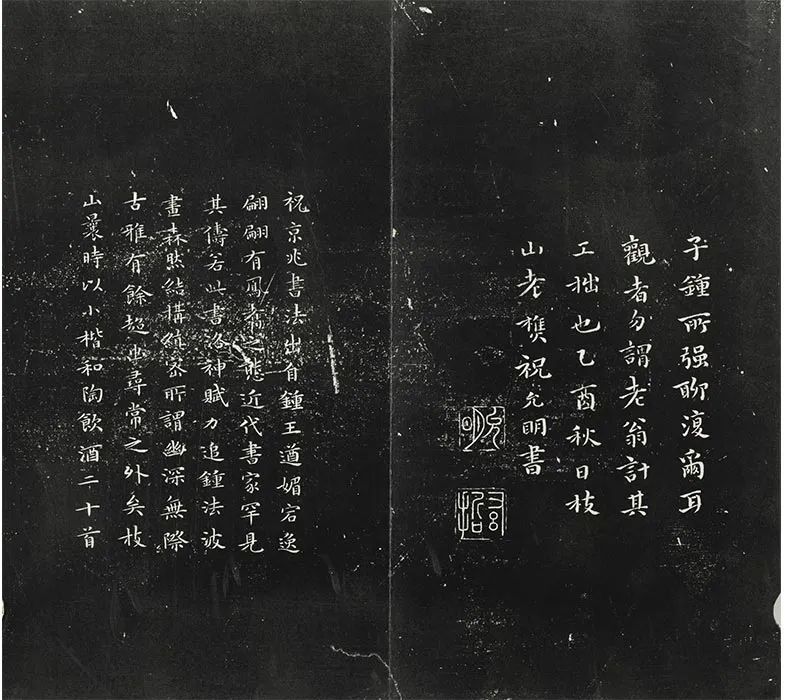 子鍾所强聊復爾耳
觀者勿謂老翁計其
工拙也乙酉秋日枝
山老樵祝允明書
允明
祝京兆書法出自鍾王遒媚宕逸
翩翩有鳳翥之態近代書家罕見
其儔若此書洛神賦力追鍾法波
畫森然結構縝密所謂幽深無際
古雅有餘超出尋常之外矣枝
山曩時以小楷和陶飲酒二十首